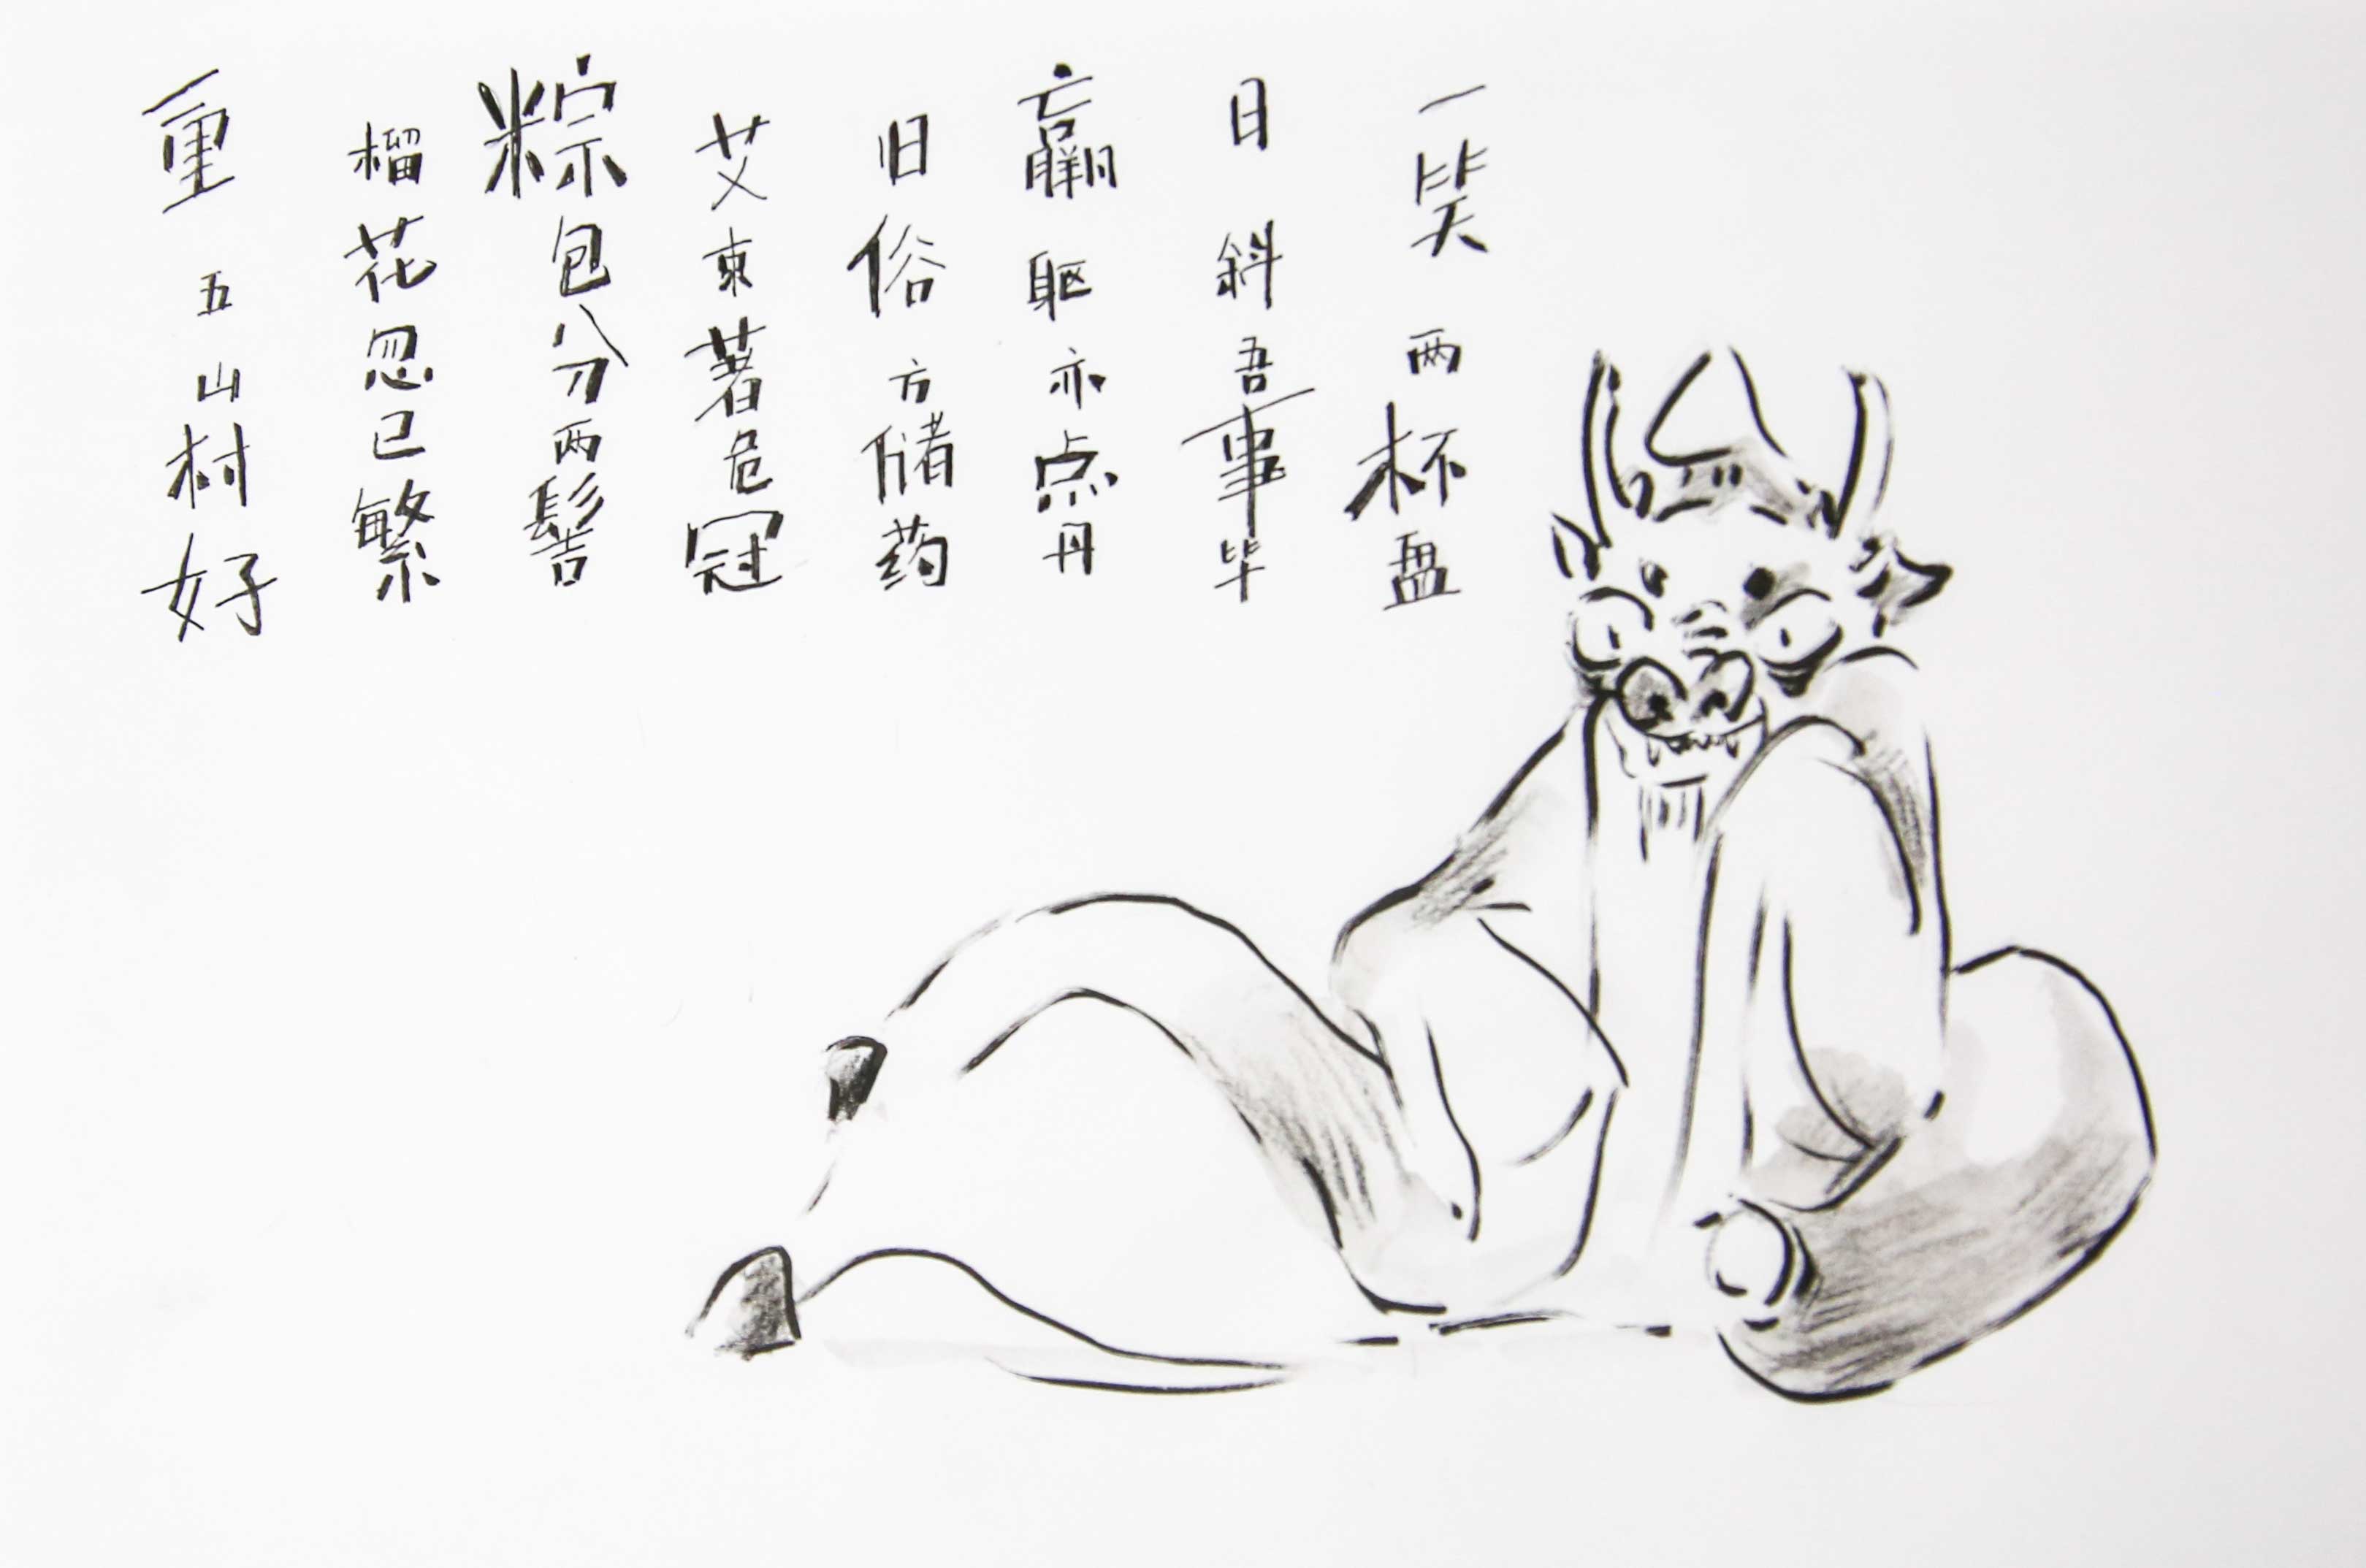 重五山村好
榴花忽已繁
粽包分两髻
艾束著危冠
旧俗方储药
羸躯亦点丹
日斜吾事毕
一笑两杯盘